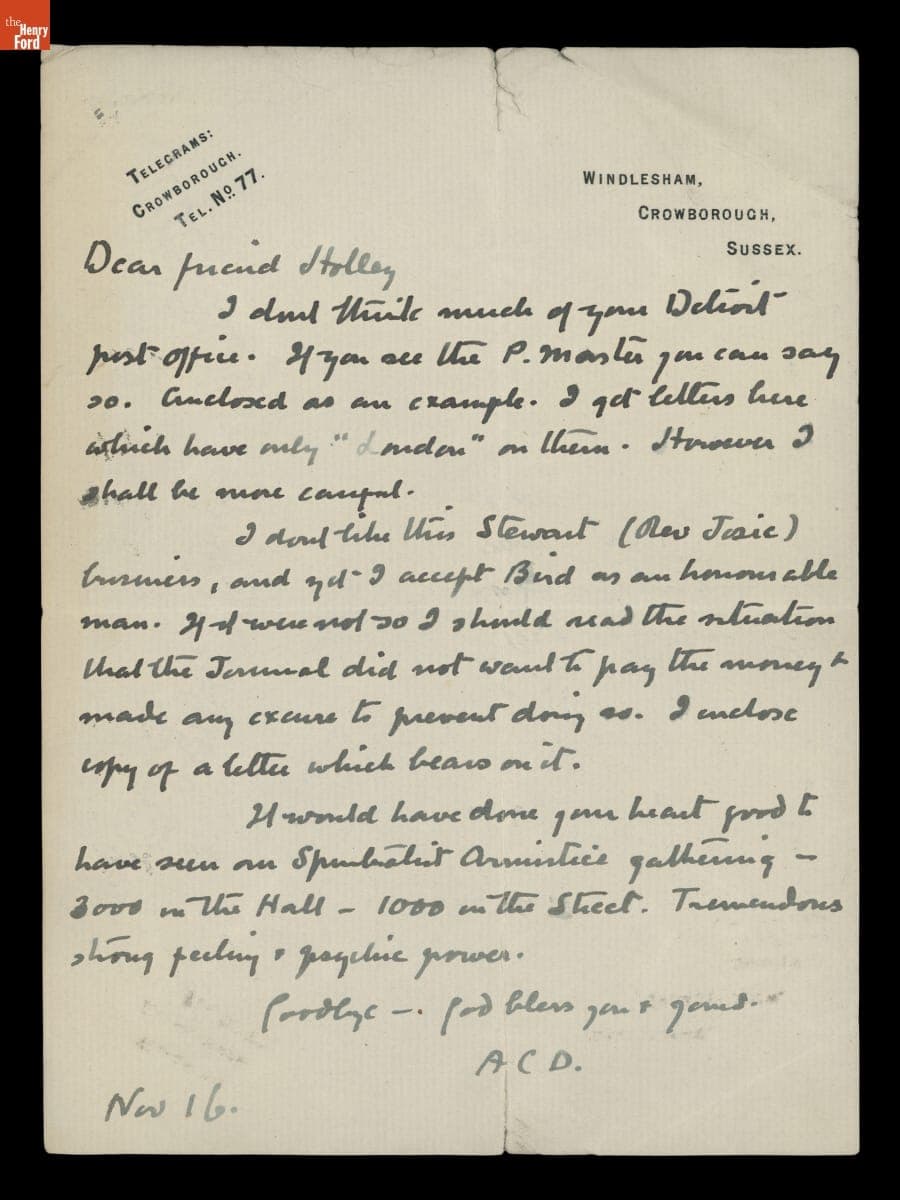 the
Henry
Ford
TELEGRAMS:
CROWBOROUGH.
TEL. No 77.
WINDLESHAM,
CROWBOROUGH,
SUSSEX.
Dear friend Holley
I dont think much of your Detroit
post office. If you see the P. Master you can say
so. Enclosed as an example. I get letters here
which have only "London" on them. However I
shall be more careful.
I dont like this Stewart (Rev Josie)
business, and yet I accept Bird as an honourable
man. If it were not so I should read the situation
that the Journal did not want to pay the money &
made any excuse to prevent doing so. I enclose
copy of a letter which bears on it.
It would have done your heart good to
have seen our Spiritualist Armistice gathering -
3000 in the Hall - 1000 in the Street. Tremendous
strong feeling & psychic power.
Goodbye -. God bless you & yours.
A C D.
Nov 16.